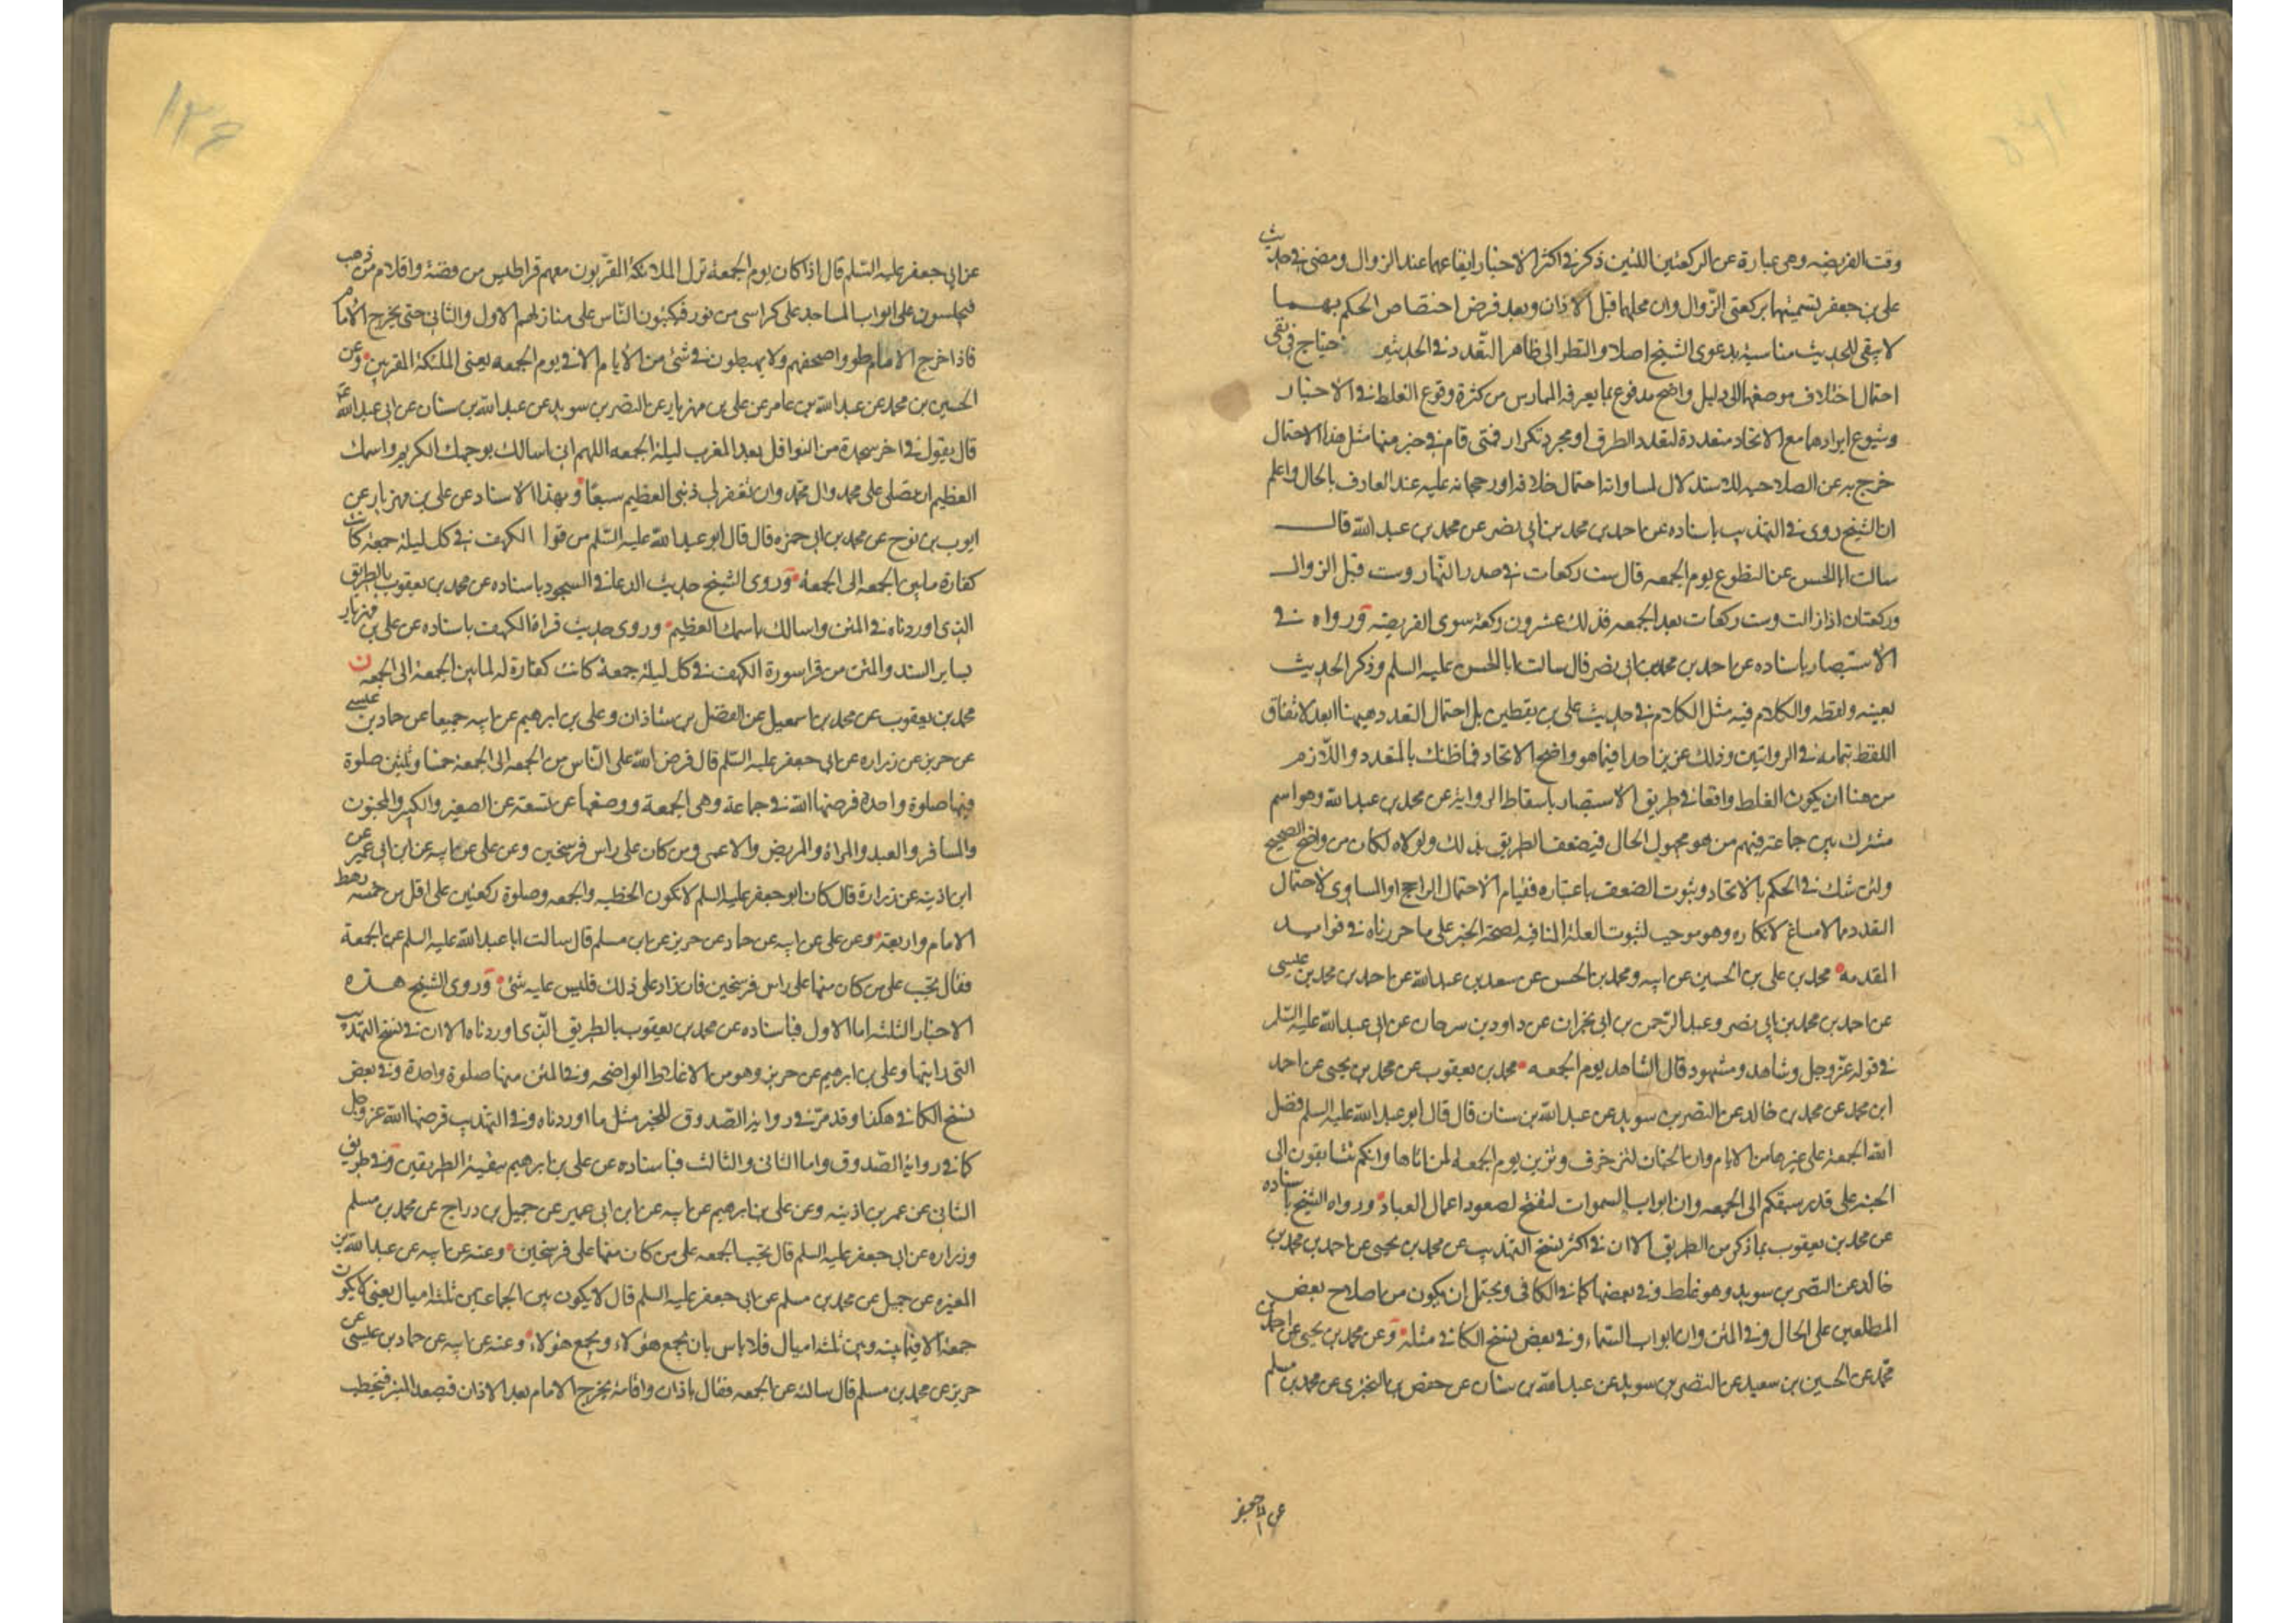 وقت الفريضه وهى عبارة عن الركعتين اللتين ذكر فى اكثر الاخبار ايقاعهما عند الزوال ومضى فى حديث
على بن جعفر تسميتهما بركعتى الزّوال وان محلهما قبل الاذان وبعد فرض اختصاص الحكم بهما
لا يبقى للحديث مناسبة بدعوى الشيخ اصلا والنظر الى ظاهر التّعدد فى الحديثين
احتمال اختلاف موصفهما الى دليل واضح مدفوع بما يعرفه الممارس من كثرة وقوع الغلط فى الاخبار
وشيوع ايرادها مع الاتحاد متعددة لتعدد الطرق او مجرد تكرار فمتى قام فى خبر منها مثل هذا الاحتمال
خرج به عن الصلاحيه للاستدلال لمساواته احتمال خلافه او رجحانه عليه عند العارف بالحال واعلم
ان الشيخ روى فى التهذيب باسناده عن احمد بن محمد بن ابى نصر عن محمد بن عبد الله قال
سالت ابا الحسن عن التطوع يوم الجمعه قال ست ركعات فى صدر النّهار وست قبل الزوال
وركعتان اذا زالت وست ركعات بعد الجمعه فذلك عشرون ركعة سوى الفريضه ورواه فى
الاستبصار باسناده عن احمد بن محمد بن ابى نصر قال سالت ابا الحسن عليه السلم وذكر الحديث
بعينه ولفظه والكلام فيه مثل الكلام فى حديث على بن يقطين بل احتمال التعدد هيهنا ابعد لاتفاق
اللفظ بتمامه فى الروايتين وذلك عزيز جدا فيما هو واضح الاتحاد فما ظنك بالمتعدد واللّازم
من هنا ان يكون الغلط واقعا فى طريق الاستبصار باسقاط الرواية عن محمد بن عبد الله وهو اسم
مشترك بين جماعة فيهم من هو مجهول الحال فيضعف الطريق بذلك ولولاه لكان من واضح الصحيح
ولئن شك فى الحكم بالاتحاد وثبوت الضعف باعتباره فقيام الاحتمال الراجح او المساوى لاحتمال
التعدد مما لا مساغ لانكاره وهو موجب لثبوت العلة المنافيه لصحة الخبر على ما حررناه فى فوايد
المقدمه محمد بن على بن الحسين عن ابيه ومحمد بن الحسن عن سعد بن عبد الله عن احمد بن محمد بن عيسى
عن احمد بن محمد بن ابى نصر وعبد الرّحمن بن ابى نجران عن داود بن سرحان عن ابى عبد الله عليه السّلم
فى قوله عزّ وجل وشاهد ومشهود قال الشاهد يوم الجمعه محمد بن يعقوب عن محمد بن يحيى عن احمد
ابن محمد عن محمد بن خالد عن النضر بن سويد عن عبد الله بن سنان قال قال ابو عبد الله عليه السلم فضل
الله الجمعة على غيرها من الايام وان الجنان لتزخرف وتزين يوم الجمعه لمن اتاها وانكم تتسابقون الى
الجنه على قدر سبقكم الى الجمعه وان ابواب السموات لتفتح لصعود اعمال العباد ورواه الشيخ باسناده
عن محمد بن يعقوب بما ذكر من الطريق الا ان فى اكثر نسخ التهذيب عن محمد بن يحيى عن احمد بن محمد بن
خالد عن النضر بن سويد وهو غلط وفى بعضها كما فى الكافى ويحتمل ان يكون من اصلاح بعض
المطلعين على الحال وفى المتن وان ابواب السّماء وفى بعض نسخ الكافى مثله وعن محمد بن يحيى عن احمد بن
محمّد عن الحسين بن سعيد عن النضر بن سويد عن عبد الله بن سنان عن حفص بن البخترى عن محمد بن مسلم
عن ابى جعفر
١٣۶
عن ابى جعفر عليه السّلم قال اذا كان يوم الجمعة نزل الملائكة المقرّبون معهم قراطيس من فضة واقلام من ذهب
فيجلسون على ابواب المساجد على كراسى من نور فيكتبون النّاس على منازلهم الاول والثانى حتى يخرج الامام
فاذا خرج الامام طووا صحفهم ولا يهبطون فى شئ من الأيام الا فى يوم الجمعه يعنى الملئكة المقربين وعن
الحسين بن محمد عن عبد الله بن عامر عن على بن مهزيار عن النضر بن سويد عن عبد الله بن سنان عن ابى عبد الله
قال يقول فى اخر سجدة من النوافل بعد المغرب ليلة الجمعه اللهم انى اسالك بوجهك الكريم واسمك
العظيم ان تصلى على محمد وال محمّد وان تغفر لى ذنبى العظيم سبعًا وبهذا الاسناد عن على بن مهزيار عن
ايوب بن نوح عن محمد بن ابى حمزه قال قال ابو عبد الله عليه السّلم من قرا الكهف فى كل ليلة جمعة كانت
كفارة ما بين الجمعه الى الجمعة وروى الشيخ حديث الدعا فى السجود باسناده عن محمد بن يعقوب بالطريق
الذى اوردناه فى المتن واسالك باسمك العظيم وروى حديث قراة الكهف باسناده عن على بن مهزيار
بساير السند والمتن من قرا سورة الكهف فى كل ليلة جمعة كانت كفارة له لما بين الجمعة الى الجمعه ن
محمد بن يعقوب عن محمد بن اسمعيل عن الفضل بن شاذان وعلى بن ابرهيم عن ابيه جميعا عن حماد بن عيسى
عن حريز عن زراره عن ابى جعفر عليه السّلم قال فرض الله على النّاس من الجمعه الى الجمعة خمسا وثلثين صلوة
فيها صلوة واحدة فرضها الله فى جماعة وهى الجمعة ووضعها عن تسعة عن الصغير والكبير والمجنون
والمسافر والعبد والمراة والمريض والاعمى ومن كان على راس فرسخين وعن على عن ابيه عن ابن ابى عمير عن
ابن اذينه عن زرارة قال كان ابو جعفر عليه السلم لا تكون الخطبه والجمعه وصلوة ركعتين على اقل من خمسه رهط
الامام واربعة وعن على عن ابيه عن حماد عن حريز عن ابن مسلم قال سالت ابا عبد الله عليه السلم عن الجمعة
فقال تجب على من كان منها على راس فرسخين فان زاد على ذلك فليس عليه شئ وروى الشيخ هذه
الاخبار الثلثه اما الاول فباسناده عن محمد بن يعقوب بالطريق الّذى اوردناه الا ان فى نسخ التهذيب
التى رايتها وعلى بن ابرهيم عن حريز وهو من الاغلاط الواضحه وفى المتن منها صلوة واحدة وفى بعض
نسخ الكافى هكذا وقد مرّ فى رواية الصّدوق للخبر مثل ما اوردناه وفى التهذيب فرضها الله عز وجل
كما فى رواية الصّدوق واما الثانى والثالث فباسناده عن على بن ابرهيم ببقية الطريقين وفى طريق
الثانى عن عمر بن اذينه وعن على بن ابرهيم عن ابيه عن ابن ابى عمير عن جميل بن دراج عن محمد بن مسلم
وزراره عن ابى جعفر عليه السلم قال تجب الجمعه على من كان منها على فرسخين وعنه عن ابيه عن عبد الله بن
المغيره عن جميل عن محمد بن مسلم عن ابى جعفر عليه السلم قال لا يكون بين الجماعتين ثلثه اميال يعنى لا يكون
جمعة الا فيما بينه وبين ثلثه اميال فلا باس بان يجمع هؤلاء ويجمع هؤلاء وعنه عن ابيه عن حماد بن عيسى عن
حريز عن محمد بن مسلم قال سالته عن الجمعه فقال باذان واقامة يخرج الامام بعد الاذان فيصعد المنبر فيخطب